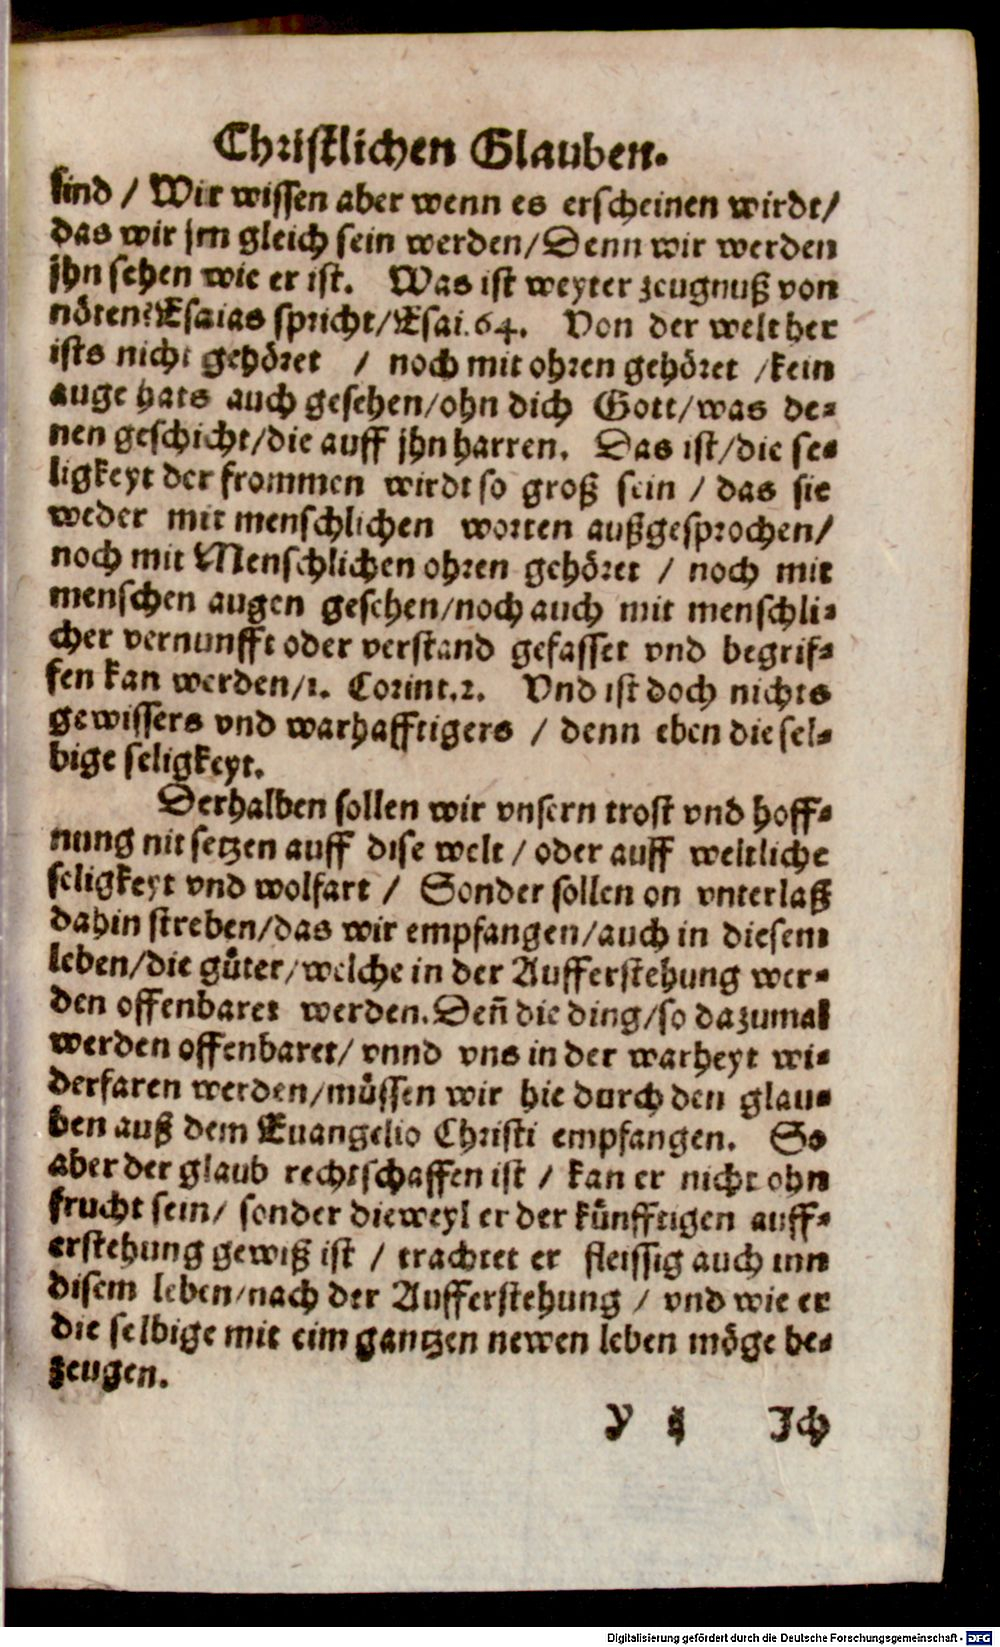 Christlichen Glauben.
sind / Wir wissen aber wenn es erscheinen wirdt/
das wir jm gleich sein werden/Denn wir werden
jhn sehen wie er ist. Was ist weyter zeugnuß von
nöten? Esaias spricht/Esai.64. Von der welt her
ists nicht gehöret / noch mit ohren gehöret /kein
auge hats auch gesehen/ohn dich Gott/was de-
nen geschicht/die auff jhn harren. Das ist/die se-
ligkeyt der frommen wirdt so groß sein / das sie
weder mit menschlichen worten außgesprochen/
noch mit Menschlichen ohren gehöret / noch mit
menschen augen gesehen/noch auch mit menschli-
cher vernunfft oder verstand gefasset vnd begrif-
fen kan werden/1. Corint.2. Vnd ist doch nichts
gewissers vnd warhafftigers / denn eben die sel-
bige seligkeyt.
Derhalben sollen wir vnsern trost vnd hoff-
nung nit setzen auff dise welt / oder auff weltliche
seligkeyt vnd wolfart / Sonder sollen on vnterlaß
dahin streben/das wir empfangen/auch in diesem
leben/die güter/welche in der Aufferstehung wer-
den offenbaret werden.Deñ die ding/so dazumal
werden offenbaret/ vnnd vns in der warheyt wi-
derfaren werden/müssen wir hie durch den glau-
ben auß dem Euangelio Christi empfangen. So
aber der glaub rechtschaffen ist / kan er nicht ohn
frucht sein/ sonder dieweyl er der künfftigen auff-
erstehung gewiß ist / trachtet er fleissig auch inn
disem leben/nach der Aufferstehung / vnd wie er
die selbige mit eim gantzen newen leben möge be-
zeugen.
Y ij Ich
Digitalisierung gefördert durch die Deutsche Forschungsgemeinschaft - DFG